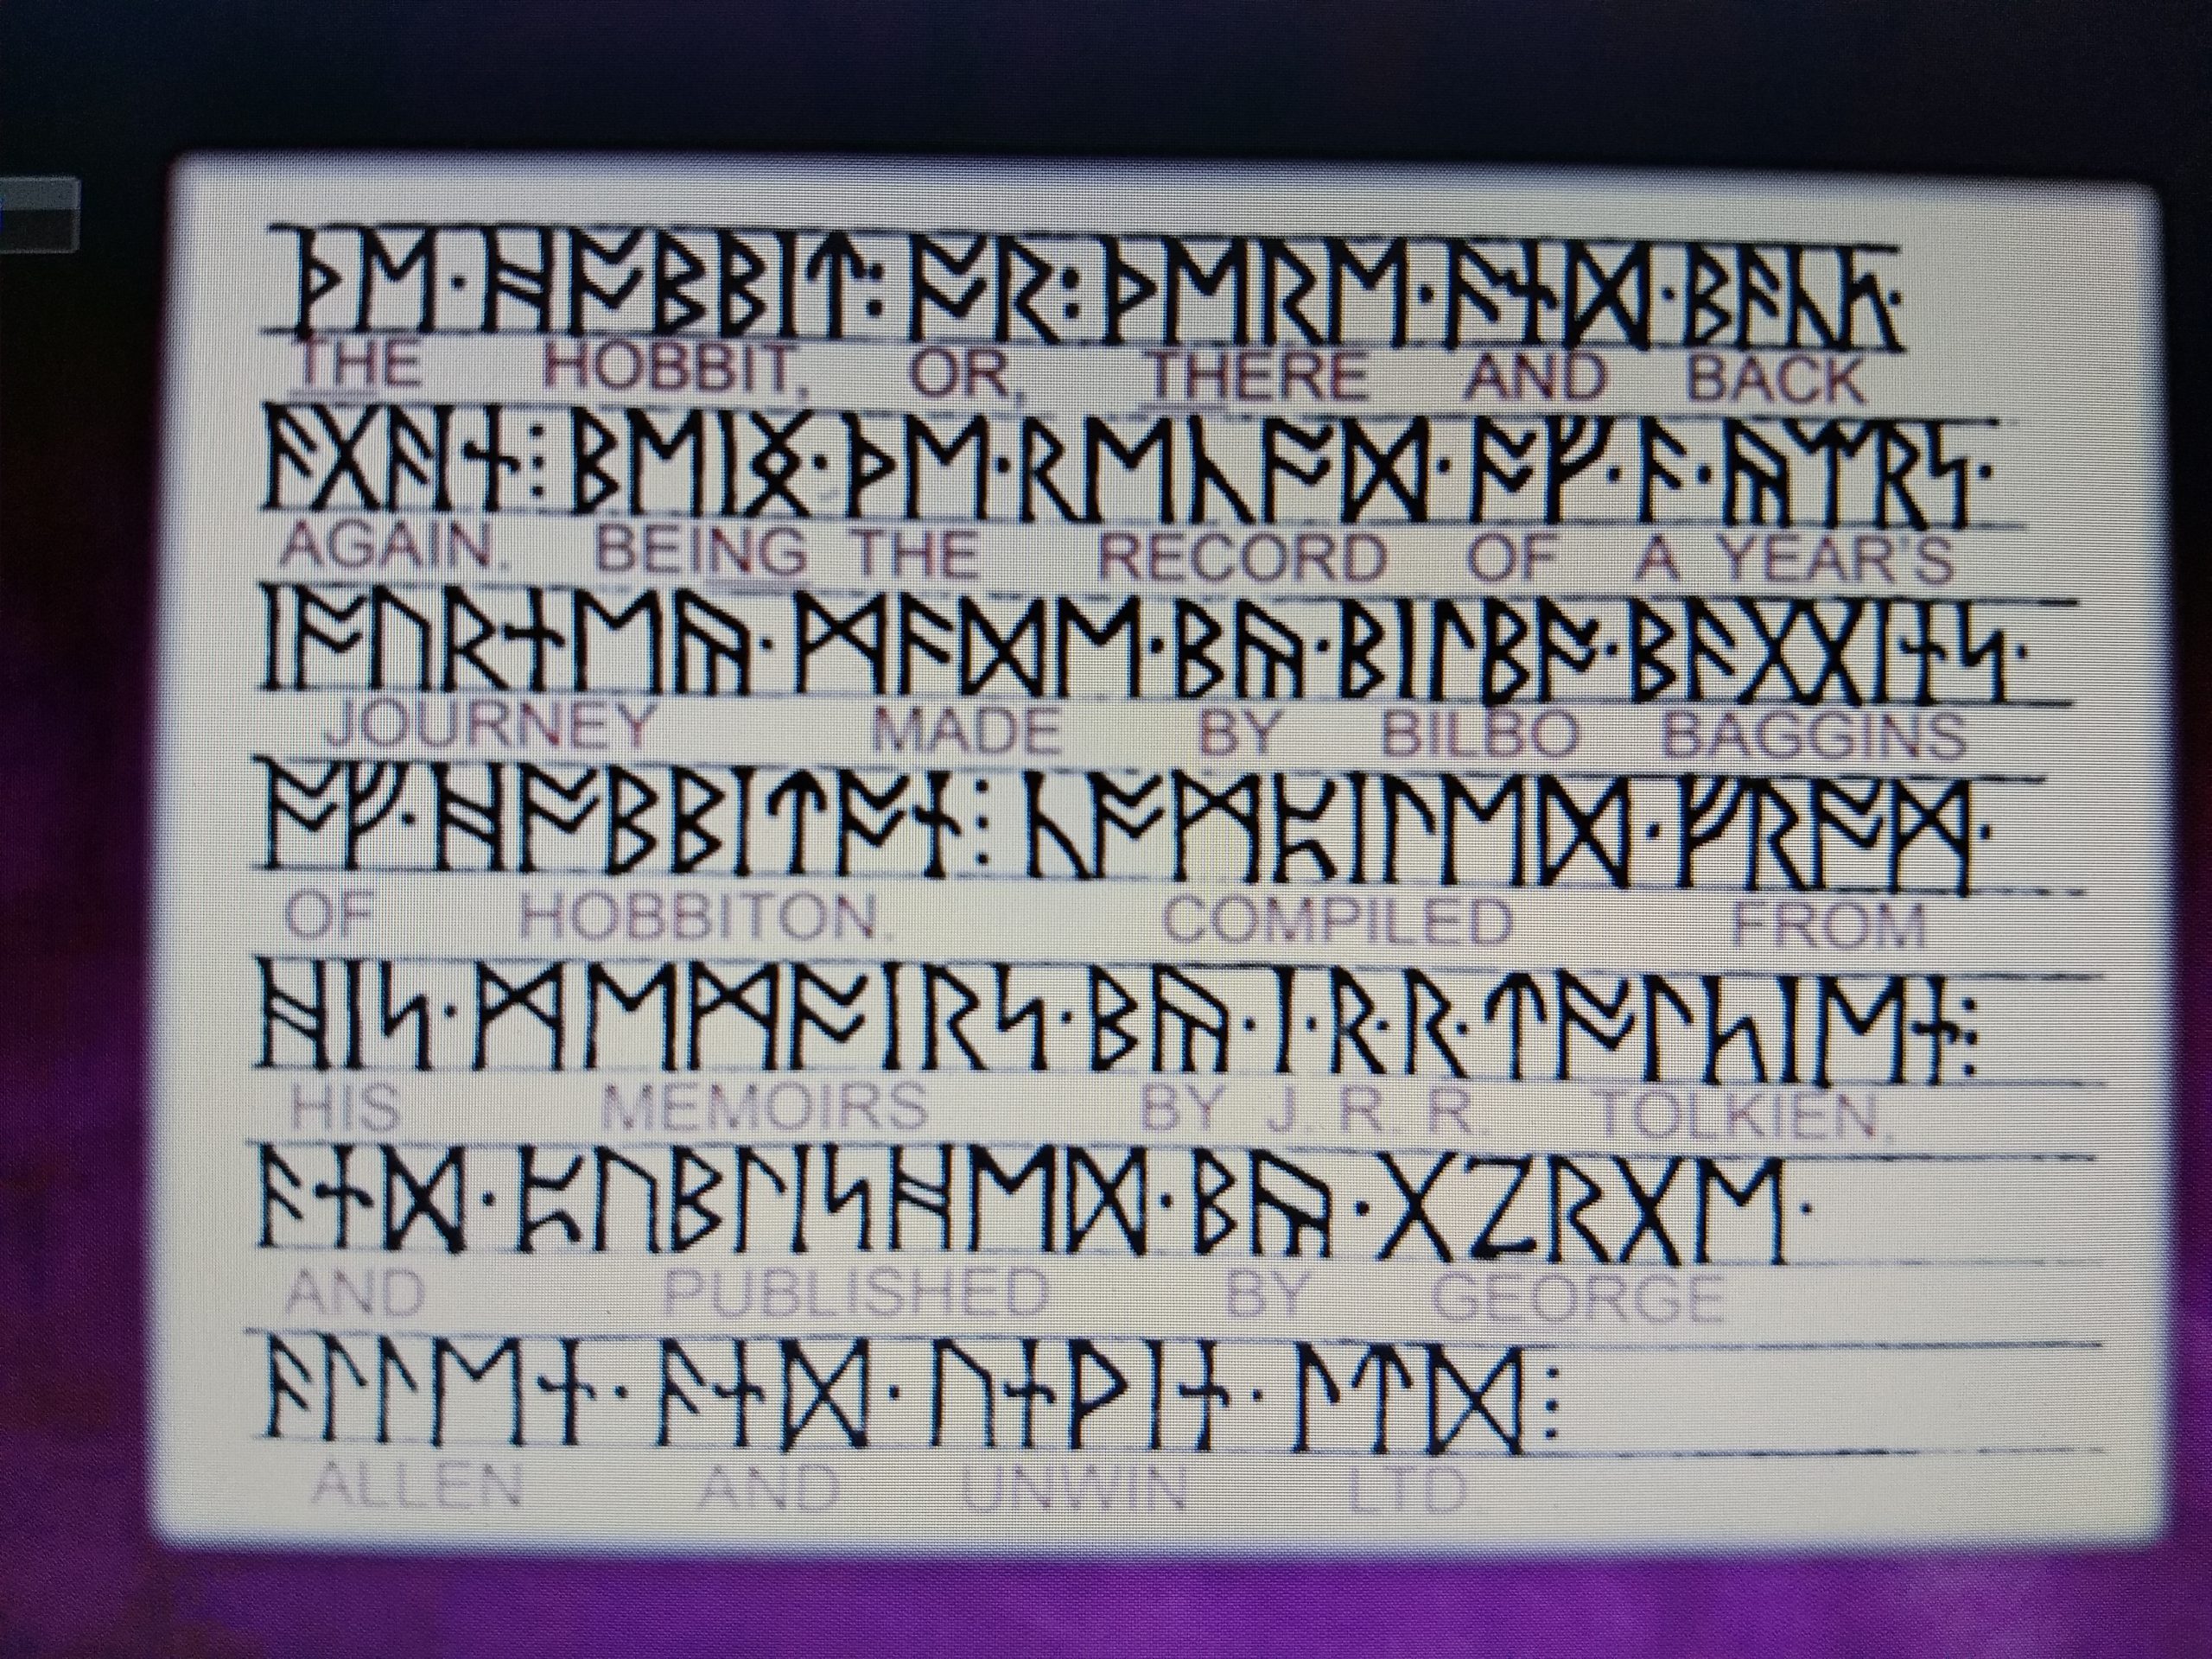 ᚦᛖ᛫ᚻᚩᛒᛒᛁᛏ:ᚩᚱ:ᚦᛖᚱᛖ᛫ᚪᚾᛞ᛫ᛒᚪᚳᛣ᛫
THE HOBBIT, OR, THERE AND BACK
ᚪᚷᚪᛁᚾ⁝ᛒᛖᛁᛝ᛫ᚦᛖ᛫ᚱᛖᚳᚩᛞ᛫ᚩᚠ᛫ᚪ᛫ᚣᛠᚱᛋ᛫
AGAIN. BEING THE RECORD OF A YEAR'S
ᛁᚩᚢᚱᚾᛖᚣ᛫ᛗᚪᛞᛖ᛫ᛒᚣ᛫ᛒᛁᛚᛒᚩ᛫ᛒᚪᚷᚷᛁᚾᛋ᛫
JOURNEY MADE BY BILBO BAGGINS
ᚩᚠ᛫ᚻᚩᛒᛒᛁᛏᚩᚾ⁝ᚳᚩᛗᛈᛁᛚᛖᛞ᛫ᚠᚱᚩᛗ᛫
OF HOBBITON. COMPILED FROM
ᚻᛁᛋ᛫ᛗᛖᛗᚩᛁᚱᛋ᛫ᛒᚣ᛫ᛁ᛫ᚱ᛫ᚱ᛫ᛏᚩᛚᛣᛁᛖᚾ⁝
HIS MEMOIRS BY J. R. R. TOLKIEN.
ᚪᚾᛞ᛫ᛈᚢᛒᛚᛁᛋᚻᛖᛞ᛫ᛒᚣ᛫ᚷᛇᚱᚷᛖ᛫
AND PUBLISHED BY GEORGE
ᚪᛚᛚᛖᚾ᛫ᚪᚾᛞ᛫ᚢᚾᚹᛁᚾ᛫ᛚᛏᛞ⁝
ALLEN AND UNWIN LTD